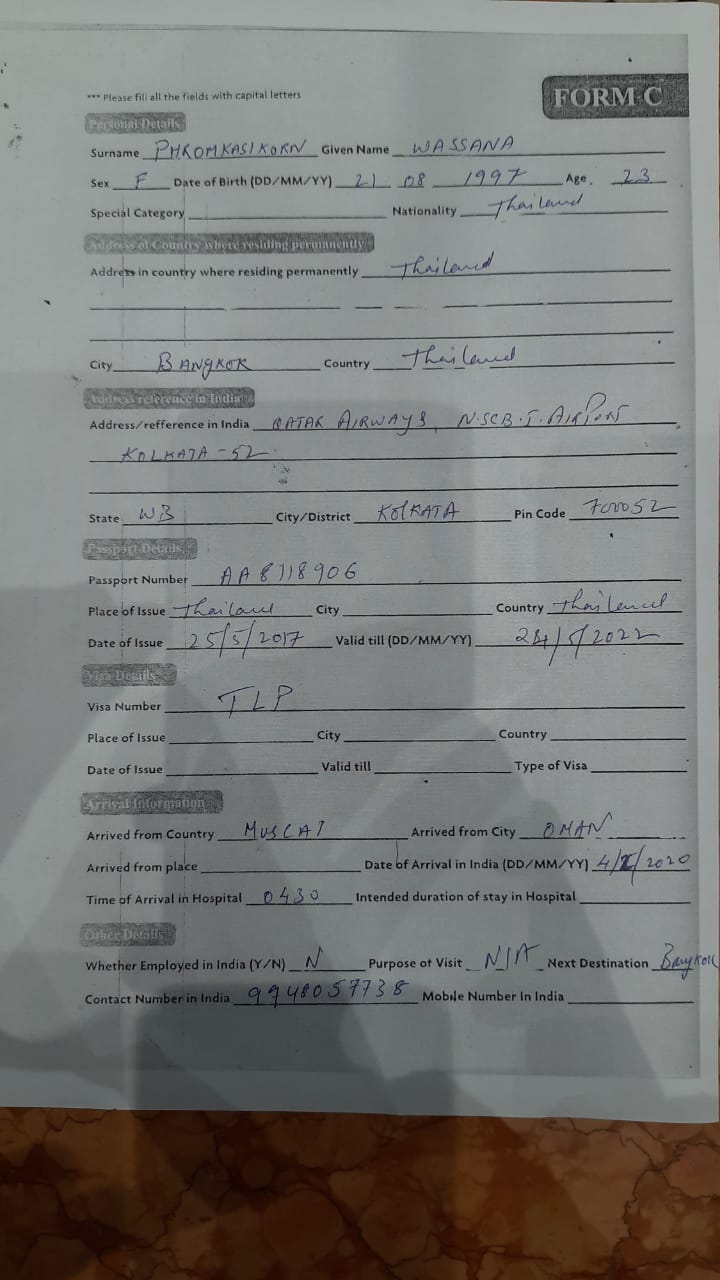 *** Please fill all the fields with capital letters
FORM C
Personal Details
Surname PHROMKASIKORN Given Name WASSANA
Sex F Date of Birth (DD/MM/YY) 21 08 1997 Age. 23
Special Category Nationality Thailand
Address of Country where residing permanently
Address in country where residing permanently Thailand
City BANGKOK Country Thailand
Address reference in India
Address/refference in India QATAR AIRWAYS, N.SCB.I. AIRPORT
KOLKATA - 52
State WB City/District KOLKATA Pin Code 700052
Passport Details
Passport Number AA8118906
Place of Issue Thailand City Country Thailand
Date of Issue 25/5/2017 Valid till (DD/MM/YY) 24/5/2022
Visa Details
Visa Number TLP
Place of Issue City Country
Date of Issue Valid till Type of Visa
Arrival Information
Arrived from Country MUSCAT Arrived from City OMAN
Arrived from place Date of Arrival in India (DD/MM/YY) 4/ /2020
Time of Arrival in Hospital 0430 Intended duration of stay in Hospital
Other Details
Whether Employed in India (Y/N) N Purpose of Visit N/A Next Destination Bangkok
Contact Number in India 9948057738 Mobile Number In India